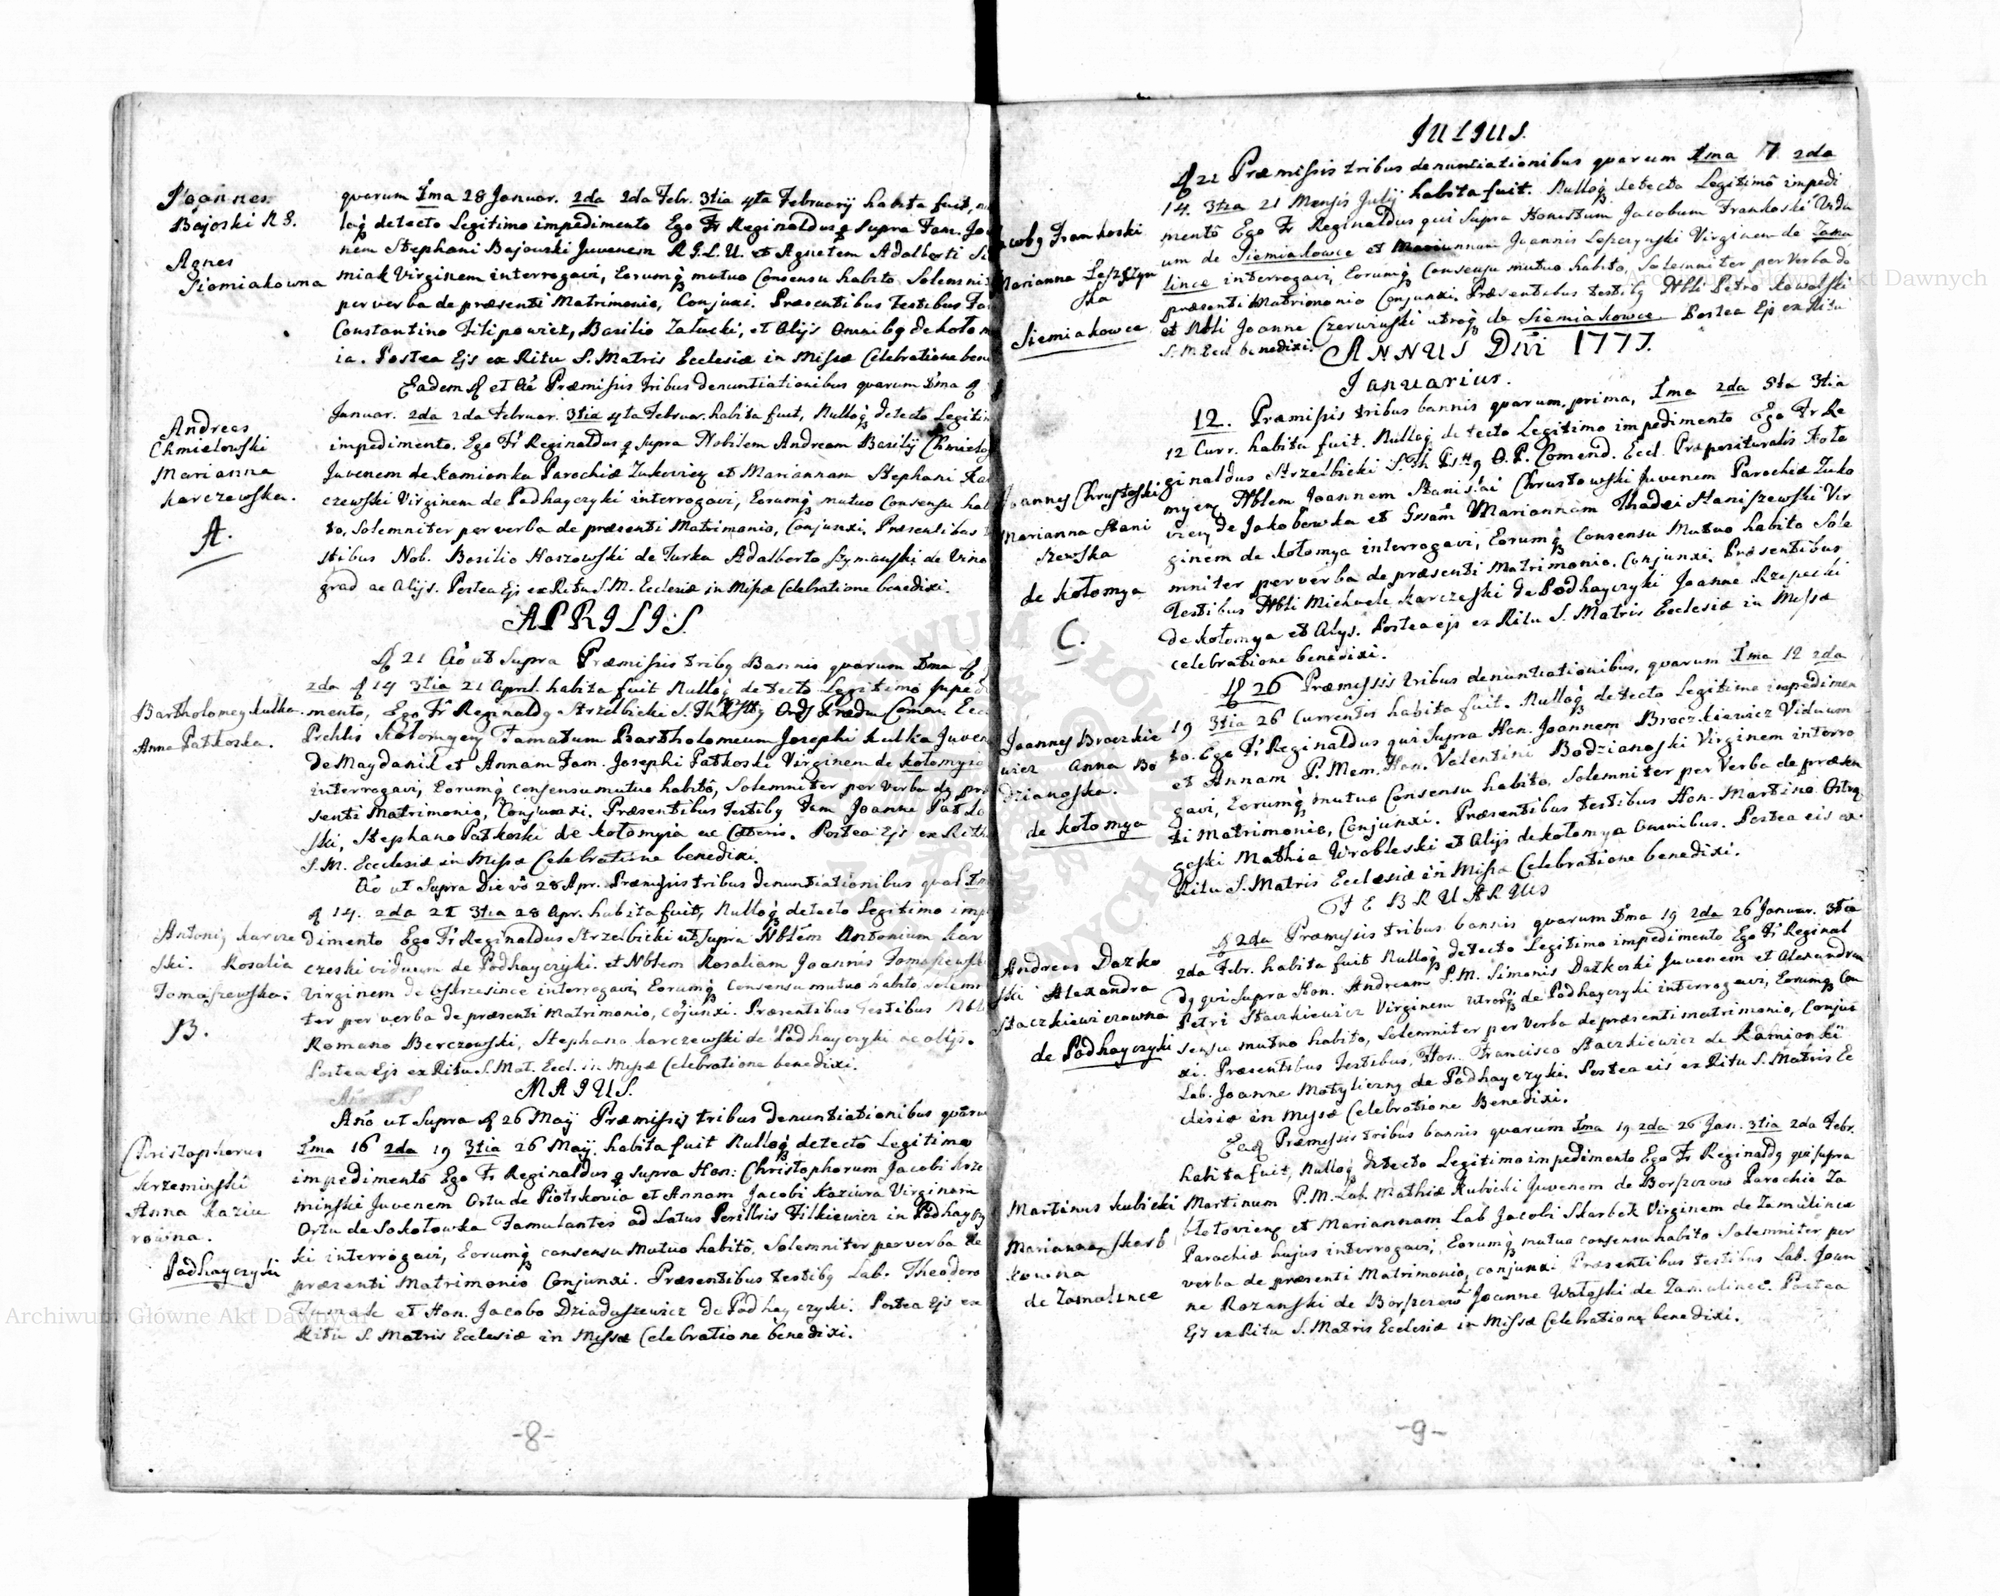 Joannes
Bajorski R S.
Agnes
Siemiakowna
quarum Ima 28 Januar. 2da 2da Febr. 3tia 4ta Februarij habita fuit,
loq detecto Legitimo impedimento Ego Fr Reginaldus q Supra Fam.
nem Stephani Bajowski Juvenem R.G.L.U. et Agnetem Adalberti
miak Virginem interrogavi, Eorumq mutuo Consensu habito Solemni
per verba de præsenti Matrimonio, Conjunxi. Præsentibus Testibus
Constantino Filipowicz, Basilio Zatucki, et Alijs Omnibq de Kołom
ia. Postea Ejs ex Ritu S. Matris Ecclesiæ in Missæ Celebratione ben
Andreas
Chmielowski
Marianna
Karczewska.
A.
Eadem et Præmissis tribus denuntiationibus quarum Ima
Januar. 2da 2da Februar. 3tia 4ta Februar. habita fuit, Nulloq detecto Legiti
impedimento. Ego Fr Reginaldus q Supra Nobilem Andream Basilij
Juvenem de Kamionka Parochiæ et Mariannam Stephani Kar
czewski Virginem de Podhayczyki interrogavi, Eorumq mutuo Consensu hab
to, Solemniter per verba de præsenti Matrimonio, Conjunxi. Præsentibus
stibus Nob. Basilio Haszowski de Turka Adalberto Szymanski de Wino
grad ac Alijs. Postea Ejs ex Ritu S. M. Ecclesiæ in Missæ Celebratione benedixi.
APRILIS.
Bartholomeq Kulka.
Anna Patkoska.
21 Ao ut Supra Præmissis tribq Bannis quarum Ima
2da 14 3tia 21 Aprl. habita fuit Nulloq detecto Legitimo Impedi
mento, Ego Fr Reginaldq Strzelbicki S. Th Ord
Prchlis Kołomyen Famatum Bartholomeum Josephi Kulka Juven
de Maydanik et Annam Fam. Josephi Patkoski Virginem de Kołomyia
interrogavi, Eorumq consensu mutuo habitô, Solemniter per Verba de præ
senti Matrimonio, Conjunxi. Præsentibus Testibq Fam Joanne Patko
ski, Stephano Patkoski de Kołomyia ac Cæteris. Postea Ejs ex Rith
S. M. Ecclesiæ in Missæ Celebratione benedixi.
Antoniq Karcze
ski. Rosalia
Tomaszewska.
B.
Ao ut Supra Die vô 28 Apr. Præmissis tribus denuntiationibus
14. 2da 21 3tia 28 Apr. habita fuit, Nulloq detecto Legitimo imp
dimento Ego Fr Reginaldus Strzelbicki ut Supra Nblem Antonium Kar
czeski viduum de Podhayczyki. et Nblem Rosaliam Joannis Tomaszewsk
Virginem de interrogavi, Eorumq Consensu mutuo habito, solemn
ter per verba de præsenti Matrimonio, Cojunxi. Præsentibus Testibus
Romano Berczowski, Stephano Karczewski de Podhayczyki ac alijs.
Postea Ejs ex Ritu S. Mat. Eccl. in Missæ Celebratione benedixi.
MAIUS.
Christophorus
Krzeminski
Anna Kaziu
rowna.
Podhayczyki
Anô ut Supra 26 May Præmissis tribus denuntiationibus quaru
Ima 16 2da 19 3tia 26 May. habita fuit Nulloq detectô Legitimo
impedimentô Ego Fr Reginaldus q Supra Hon: Christophorum Jacobi Krze
minski Juvenem Ortu de Piotrkovia et Annam Jacobi Kaziura Virginem
Ortu de Sokołowka Famulantes ad Latus Perillris Filkiewicz in Podhayczy
ki interrogavi, Eorumq consensu Mutuo habitô, Solemniter per verba de
præsenti Matrimonio Conjunxi. Præsentibus testibq Lab. Theodoro
et Hon. Jacobo Dziaduszewicz de Podhayczyki. Postea Ejs ex
Ritu S. Matris Ecclesiæ in Missæ Celebratione benedixi.
-8-
JULIUS.
Jacobq Frankoski
Marianna Lepszyn
ska
Siemiakowce
21 Præmissis tribus denuntiationibus quarum Ima 7. 2da
14. 3tia 21 Mensis Julij habita fuit. Nulloq detecto Legitimô impedi
mentô Ego Fr Reginaldus qui Supra Honestum Jacobum Frankoski Vidu
um de Siemiakowce et Mariannam Joannis Lepczynski Virginem de Zamu
lince interrogavi, Eorumq Consensu mutuo habito, Solemniter per Verba de
præsenti Matrimonio Conjunxi. Præsentibus testibq Nbli Petro Kowalski
et Nbli Joanne utroq de Siemiakowce Postea Ejs ex Ritu
S. M. Eccl. benedixi.
ANNUS Dni 1777.
Januarius.
Joannes Chrustoski
Marianna Stani
szewska
de Kołomya
C.
12. Præmissis tribus bannis quarum prima, Ima 2da 5ta 3tia
12 Curr. habita fuit. Nulloq detecto Legitimo impedimento Ego Fr Re
ginaldus Strzelbicki S. Th O. P. Comend. Eccl. Præposituralis Koło
myen, Nblem Joannem Stanislai Chrustowski Juvenem Parochiæ Zuko
de Jakobowka et Mariannam Thadei Staniszewski Vir
ginem de Kołomya interrogavi, Eorumq Consensu Mutuo habito Sole
mniter per verba de præsenti Matrimonio, Conjunxi. Præsentibus
Testibus Nbli Michaele Karczeski de Podhayczyki Joanne Rzepecki
de Kołomya et Alys. Postea ejs ex Ritu S. Matris Ecclesiæ in Missæ
celebratione benedixi.
Joannes Broczkie
wicz Anna Bo
dzianoska.
de Kołomya
26 Præmissis tribus denuntiationibus, quarum Ima 12 2da
19 3tia 26 Currentis habita fuit. Nulloq detecto Legitimo impedimen
to. Ego Fr Reginaldus qui Supra Hon. Joannem Broczkiewicz Viduum
et Annam P. Mem. Hon. Valentini Bodzianoski Virginem interro
gavi, Eorumq mutuo Consensu habito, Solemniter per Verba de præsen
ti Matrimonio, Conjunxi. Præsentibus testibus Hon. Martino
Mathia Wrobleski et Alijs de Kołomya Omnibus. Postea eis ex
Ritu S. Matris Ecclesiæ in Missæ Celebratione benedixi.
FEBRUARIUS
Andreas Datko
ski Alexandra
Staczkiewiczowna
de Podhayczyki
2da Præmissis tribus bannis quarum Ima 19 2da 26 Januar. 3tia
2da Febr. habita fuit Nulloq detecto Legitimo impedimento Ego Fr Reginal
dq qui Supra Hon. Andream P. M. Simonis Datkoski Juvenem et Alexandram
Petri Staczkiewicz Virginem utrosq de Podhayczyki interrogavi, Eorumq Con
sensu mutuo habito, Solemniter per Verba de præsenti matrimonio, Conjun
xi. Præsentibus Testibus, Hon. Francisco Staczkiewicz de Kamionki
Lab. Joanne Motyliczny de Podhayczyki. Postea eis ex Ritu S. Matris Ec
clesiæ in Missæ Celebratione Benedixi.
Martinus Kubicki
Marianna Skarb
kowna
de Zamulince
Præmissis tribus bannis quarum Ima 19 2da 26 Jan. 3tia 2da Febr.
habita fuit, Nulloq detecto Legitimo impedimento Ego Fr Reginaldq qui supra
Martinum P. M. Lab. Mathiæ Kubicki Juvenem de Borszczow Parochiæ Za
błotovien et Mariannam Lab Jacobi Skarbek Virginem de Zamulince
Parochiæ hujus interrogavi, Eorumq mutuo consensu habito Solemniter per
verba de præsenti Matrimonio, conjunxi Præsentibus testibus Lab. Joan
ne Rozanski de Borszczow Joanne de Zamulince. Postea
Ejs ex Ritu S. Matris Ecclesiæ in Missæ Celebratione benedixi.
-9-
Archiwum Główne Akt Dawnych